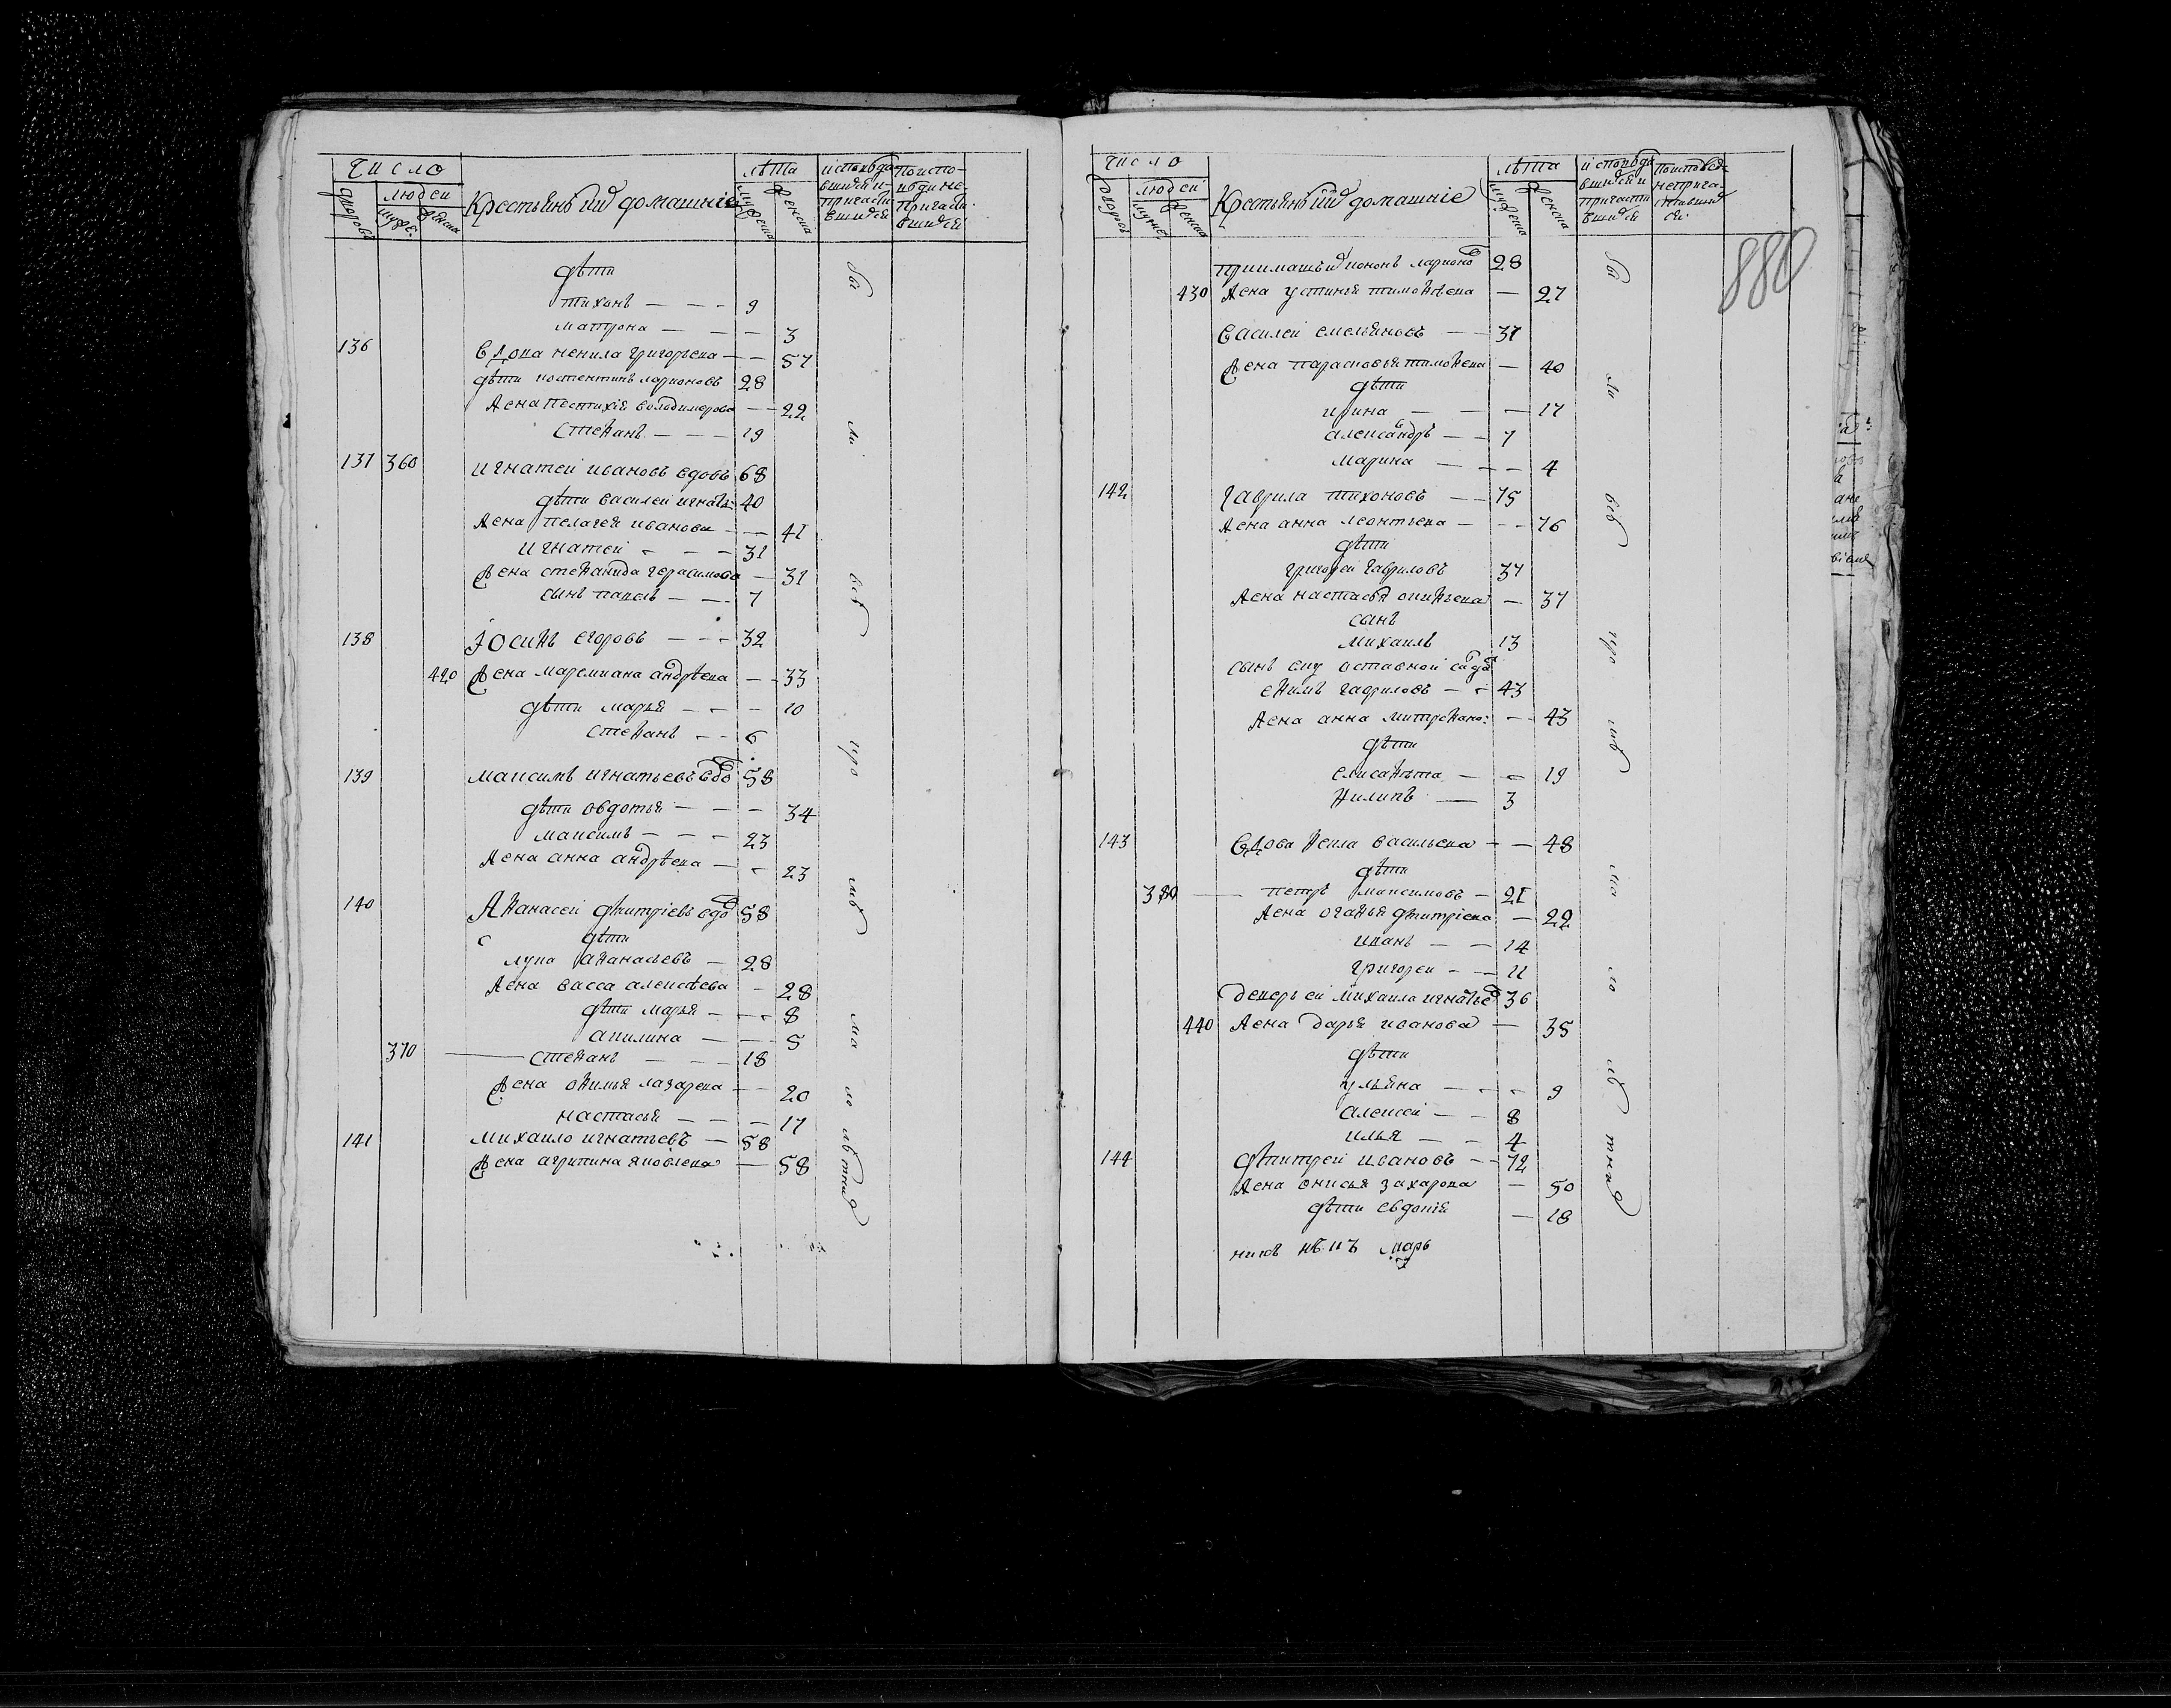 Число
людей
Крестьяне и их домашніе
лѣта
дворовъ
муже.
женска
мужеска
женска
исповѣдавшихся и причастившихся
по исповѣди не причастившихся
дѣти
тихонъ — — — 9
матрона — — — 3
136 вдова ненила григорьева — — 57
дѣти костентинъ ларионовъ 28
жена пестихія володимерова — — 22
степанъ — — — 19
137 360 игнатей ивановъ вдовъ 68
дѣти василей игнатье: 40
жена пелагея иванова — — 41
игнатей — — — 31
жена степанида герасимова — 31
сынъ павелъ — — — 7
138 Іосифъ егоровъ — — — 32
420 жена маремиана андрѣева — — 33
дѣти марья — — — 10
степанъ — — 6
139 максимъ игнатьевъ вдо 58
дѣти овдотья — — — 34
максимъ — — — 23
жена анна андрѣева — — 23
140 Афанасей дмитріевъ вдо 58
дѣти
лука афанасьевъ — 28
жена васса алексѣева — 28
дѣти марья — — — 8
акилина — — — 5
370 степанъ — — — 18
жена офимья лазарева — — 20
настасья — — — 17
141 михайло игнатьевъ — 58
жена агрипина яковлева — 58
Число
людей
Крестьяне и их домашніе
лѣта
дворовъ
муже.
женска
мужеска
женска
исповѣдавшихся и причастившихся
по исповѣди не причастившихся
880
приимышъ кононъ ларионо 28
430 жена устинья тимофѣева — 27
василей емельяновъ — — 37
жена парасковья тимофева — 40
дѣти
ирина — — — 17
александръ — — 7
марина — — — 4
142 гаврила тихоновъ — — 75
жена анна леонтьева — — — 76
дѣти
григорей гавриловъ 37
жена настасья — 37
сынъ
михаилъ 13
сынъ ему оставной
ефимъ гавриловъ — — 43
жена анна митрофано: — — 43
дѣти
елисафета — — 19
филипъ — 3
143 вдова фекла васильева — — 48
дѣти
380 петръ максимовъ — 21
жена огафья дмитріева — 22
иванъ — — 14
григорей — — 11
деверь ей михаила игнатье 36
440 жена дарья иванова — 35
дѣти
ульяна — — — 9
алексей — — 8
илья — — 4
144 дмитрей ивановъ — — 72
жена онисья захарова — 50
дѣти евдокія — 18